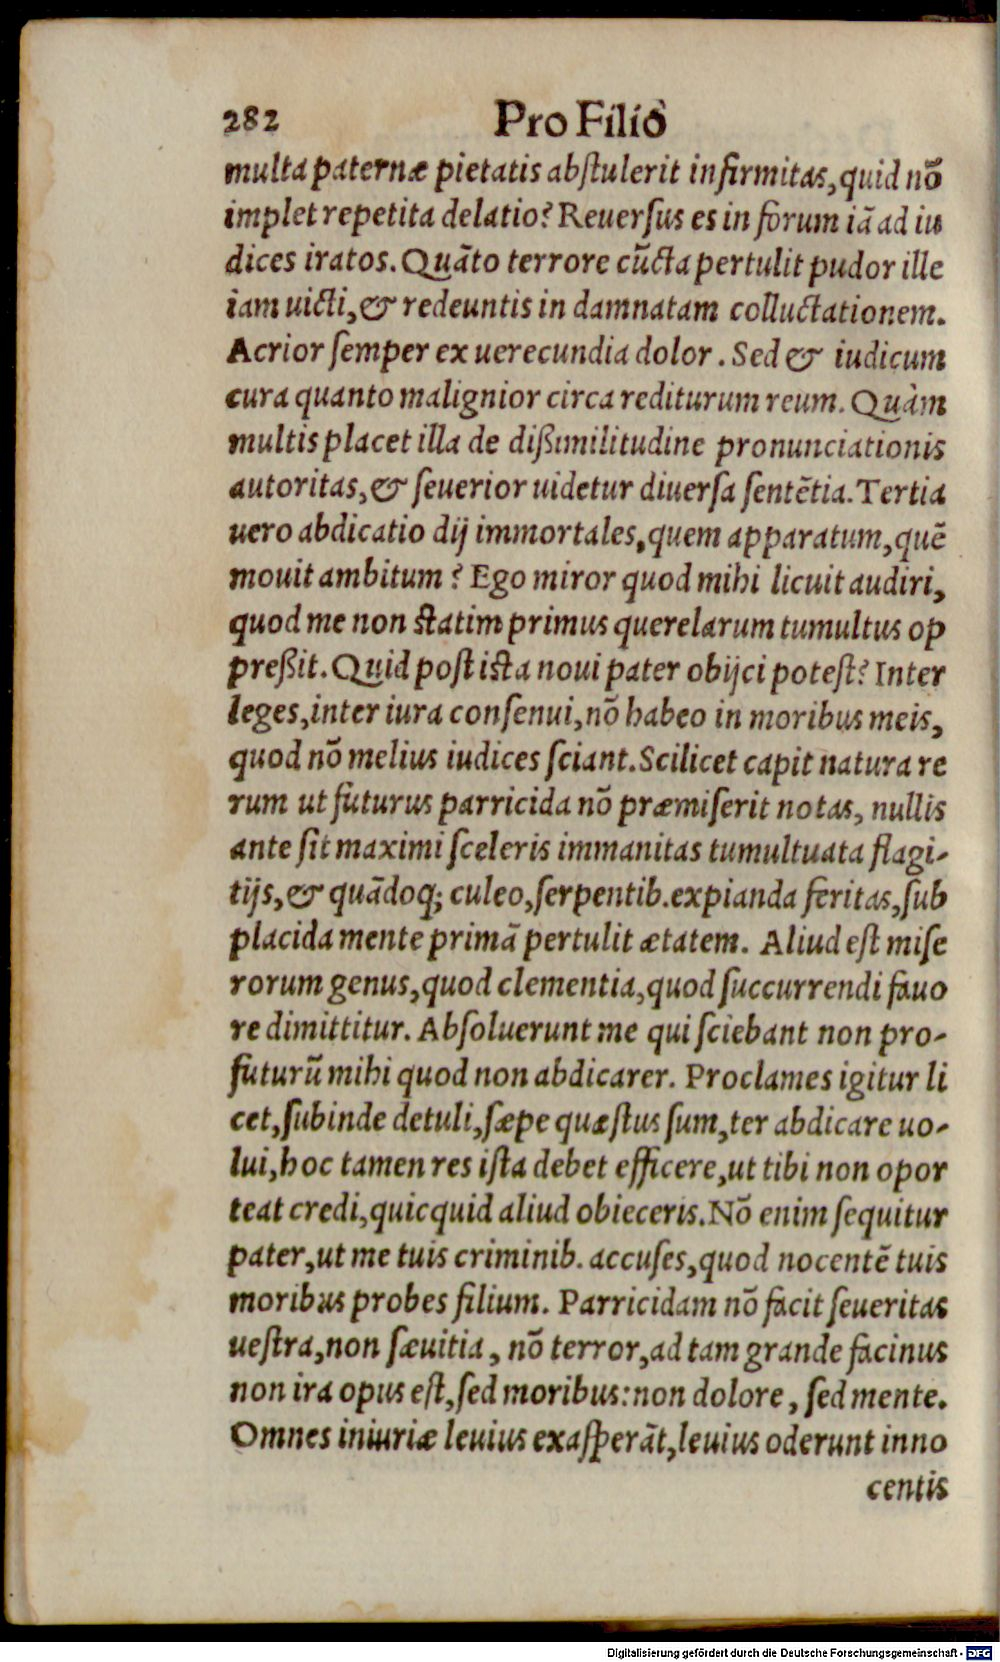 282 Pro Filio
multa paternæ pietatis abſtulerit infirmitas, quid nõ
implet repetita delatio? Reuerſus es in forum iã ad iu
dices iratos. Quãto terrore cũcta pertulit pudor ille
iam uicti, & redeuntis in damnatam colluctationem.
Acrior ſemper ex uerecundia dolor. Sed & iudicum
cura quanto malignior circa rediturum reum. Quàm
multis placet illa de dißimilitudine pronunciationis
autoritas, & ſeuerior uidetur diuerſa ſentẽtia. Tertia
uero abdicatio dij immortales, quem apparatum, quẽ
mouit ambitum? Ego miror quod mihi licuit audiri,
quod me non ſtatim primus querelarum tumultus op
preßit. Quid poſt iſta noui pater obijci poteſt? Inter
leges, inter iura conſenui, nõ habeo in moribus meis,
quod nõ melius iudices ſciant. Scilicet capit natura re
rum ut futurus parricida nõ præmiſerit notas, nullis
ante ſit maximi ſceleris immanitas tumultuata flagi-
tijs, & quãdoq; culeo, ſerpentib. expianda feritas, ſub
placida mente primã pertulit ætatem. Aliud eſt miſe
rorum genus, quod clementia, quod ſuccurrendi fauo
re dimittitur. Abſoluerunt me qui ſciebant non pro-
futurũ mihi quod non abdicarer. Proclames igitur li
cet, ſubinde detuli, ſæpe quæſtus ſum, ter abdicare uo-
lui, hoc tamen res iſta debet efficere, ut tibi non opor
teat credi, quicquid aliud obieceris. Nõ enim ſequitur
pater, ut me tuis criminib. accuſes, quod nocentẽ tuis
moribus probes filium. Parricidam nõ facit ſeueritas
ueſtra, non ſæuitia, nõ terror, ad tam grande facinus
non ira opus eſt, ſed moribus: non dolore, ſed mente.
Omnes iniuriæ leuius exaſperãt, leuius oderunt inno
centis
Digitalisierung gefördert durch die Deutsche Forschungsgemeinschaft - DFG